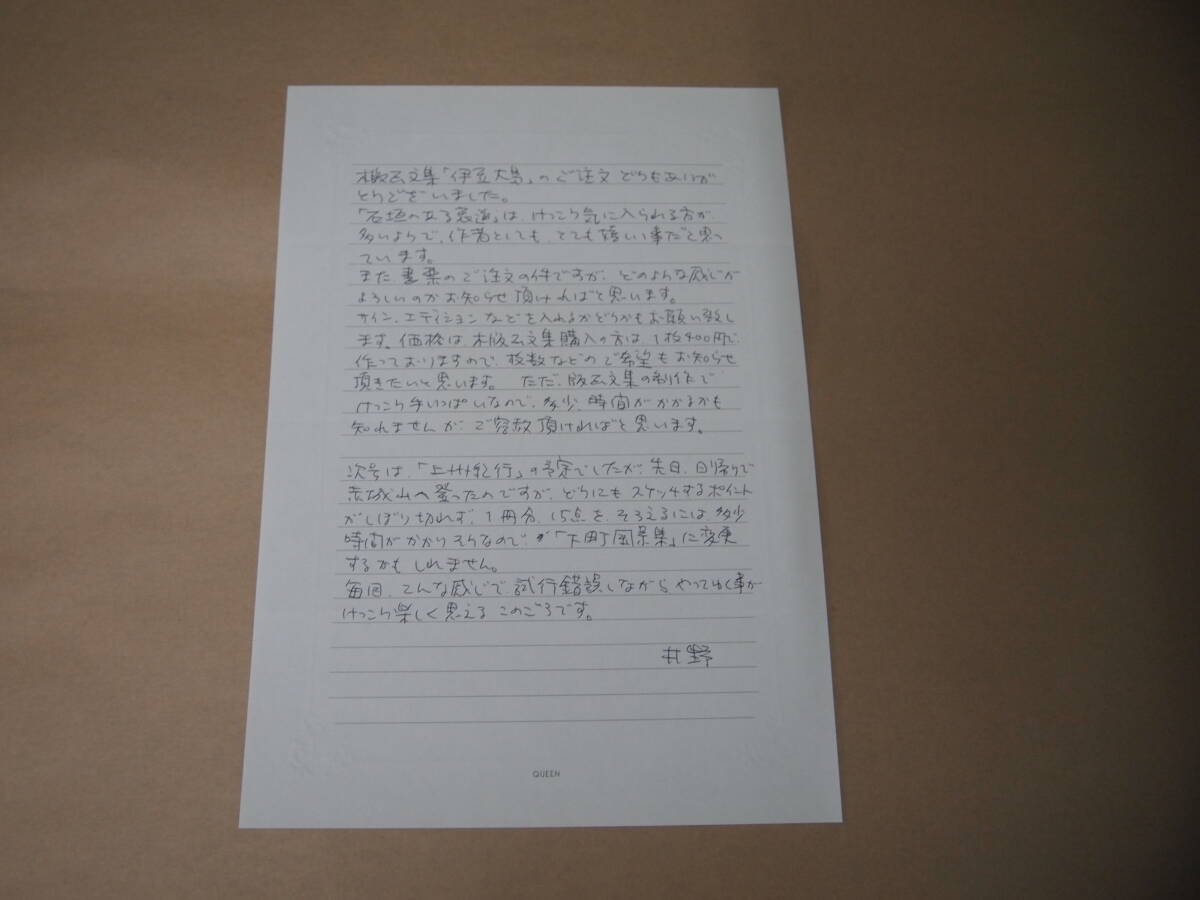 木版画文集「伊豆大島」のご注文どうもありが
とうございました。
「石垣のある坂道」は、けっこう気に入られる方が
多いようで、作者としても、とても嬉しい事だと思っ
ています。
また、書票のご注文の件ですが、どのような感じが
よろしいのかお知らせ頂ければと思います。
サイン、エディションなどを入れるかどうかもお願い致し
ます。価格は、木版画文集購入の方は、1枚400円で
作っておりますので、枚数などのご希望もお知らせ
頂きたいと思います。 ただ、版画文集の制作で
けっこう手いっぱいなので、多少、時間がかかるかも
知れませんが、ご容赦頂ければと思います。
次号は、「上州紀行」の予定でしたが、先日、日帰りで
赤城山へ登ったのですが、どうにもスケッチするポイント
がしぼり切れず、1冊分、15点を、そろえるには多少
時間がかかりそうなので、「下町風景集」に変更
するかもしれません。
毎回、こんな感じで、試行錯誤しながらやってゆく事が
けっこう楽しく思えるこのごろです。
井野
QUEEN